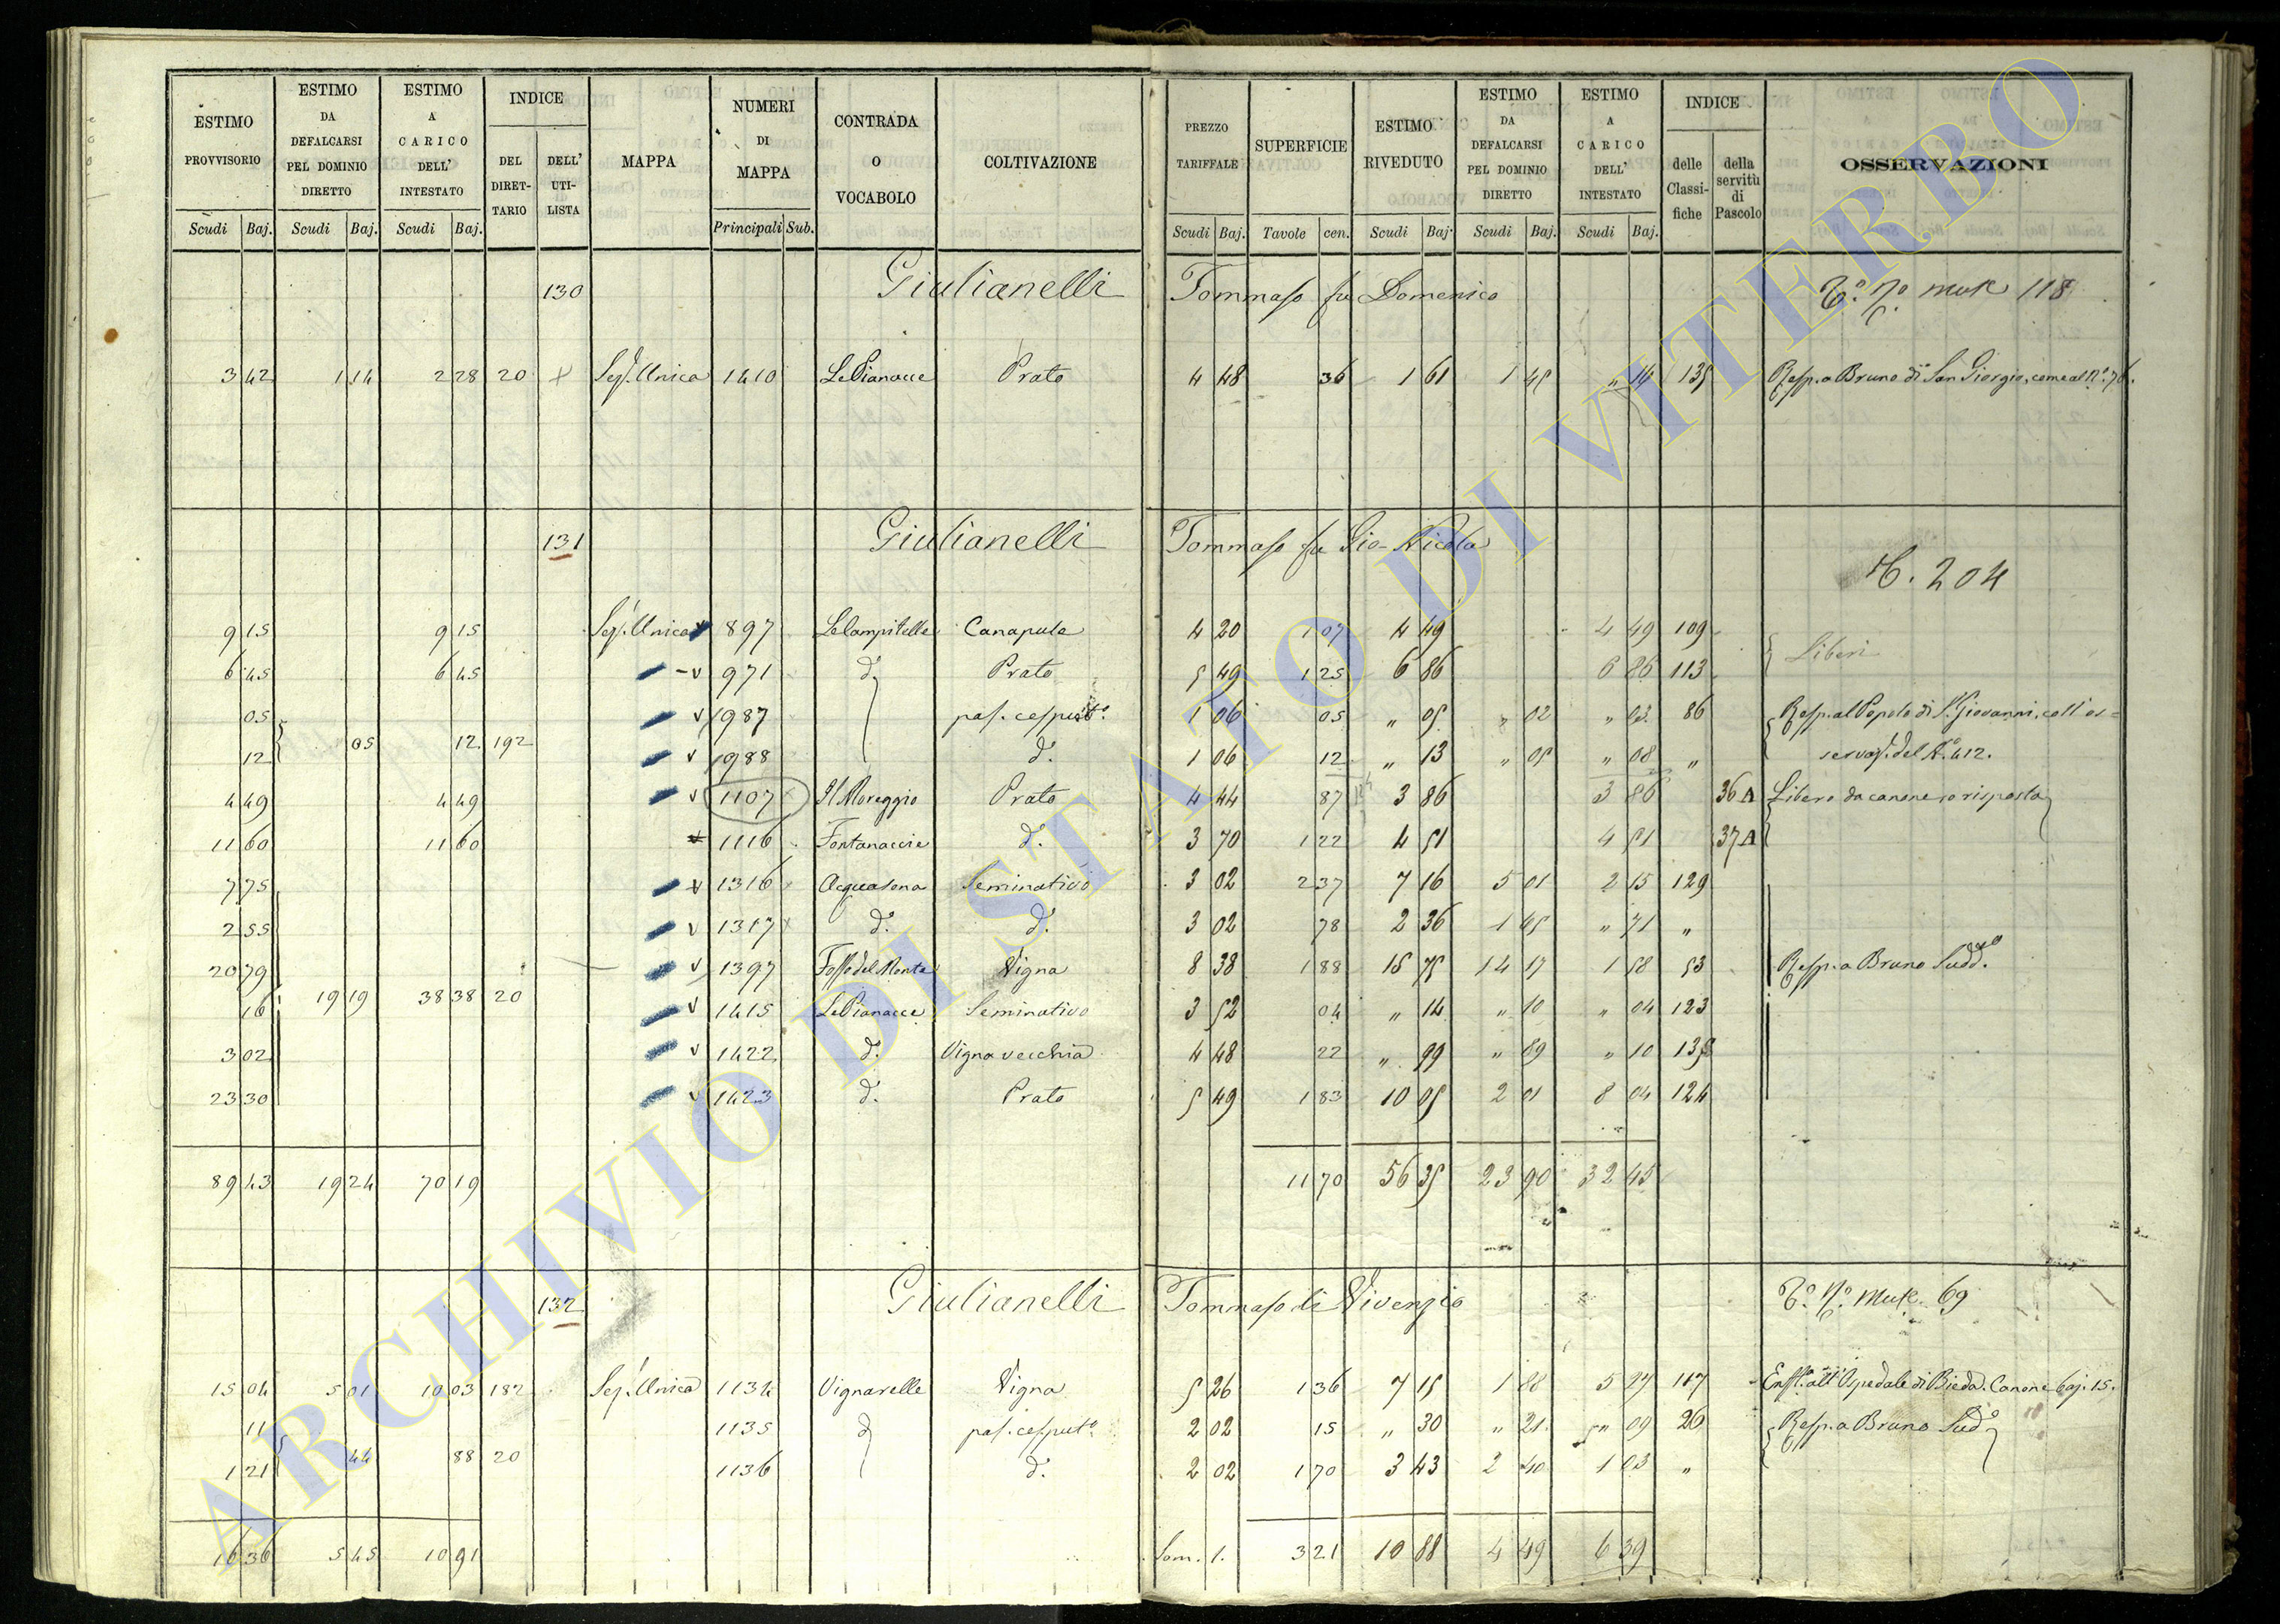 ESTIMO PROVVISORIO | ESTIMO DA DEFALCARSI PEL DOMINIO DIRETTO | ESTIMO A CARICO DELL' INTESTATO | INDICE DEL DIRET-TARIO | DELL' UTI-LISTA | MAPPA | NUMERI DI MAPPA | CONTRADA O VOCABOLO | COLTIVAZIONE | PREZZO TARIFFALE | SUPERFICIE | ESTIMO RIVEDUTO | ESTIMO DA DEFALCARSI PEL DOMINIO DIRETTO | ESTIMO A CARICO DELL' INTESTATO | INDICE delle Classi-fiche | della servitù di Pascolo | OSSERVAZIONI
Scudi Baj. | Scudi Baj. | Scudi Baj. | Principali Sub. | Scudi Baj. | Tavole cen. | Scudi Baj. | Scudi Baj. | Scudi Baj.
130 Giulianelli Tommaso fu Domenico 118
3 42 | 1 14 | 2 28 | 20 | Sez. Unica | 1410 | Le Pianacce | Prato | 4 48 | 36 | 1 61 | 1 45 | " 14 | 135 | Resp. a Bruno di San Giorgio, come al N.° 76.
131 Giulianelli Tommaso fu Gio- Nicola
204
9 15 | 9 15 | Sez. Unica | 897 | Le Campitelle | Canapule | 4 20 | 1 07 | 4 49 | 4 49 | 109 | Liberi
6 45 | 6 45 | 971 | d.° | Prato | 5 49 | 1 25 | 6 86 | 6 86 | 113
05 | 987 | pas. cespuit.° | 1 06 | 05 | " 05 | " 02 | " 03 | 86 | Resp. al Popolo di S. Giovanni, coll'os=
12 | 05 | 12 | 192 | 988 | d.° | 1 06 | 12 | " 13 | " 05 | " 08 | " | servaz. del N.° 412.
4 49 | 4 49 | 1107 | Il Moreggio | Prato | 4 44 | 87 | 3 86 | 3 86 | 36 A | Libero da canone o risposta
11 60 | 11 60 | 1116 | Fontanaccie | d.° | 3 70 | 1 22 | 4 51 | 4 51 | 37 A
7 75 | 1316 | Acquasona | Seminativo | 3 02 | 2 37 | 7 16 | 5 01 | 2 15 | 129
2 55 | 1317 | d.° | d.° | 3 02 | 78 | 2 36 | 1 65 | " 71 | "
20 79 | 1397 | Fosso del Monte | Vigna | 8 38 | 1 88 | 15 75 | 14 17 | 1 58 | 53 | Resp. a Bruno Sudd.°
16 | 19 19 | 38 38 | 20 | 1415 | Le Pianacce | Seminativo | 3 52 | 04 | " 14 | " 10 | " 04 | 123
3 02 | 1422 | d.° | Vigna vecchia | 4 48 | 22 | " 99 | " 89 | " 10
23 30 | 1423 | d.° | Prato | 5 49 | 1 83 | 10 05 | 2 01 | 8 04 | 124
89 43 | 19 24 | 70 19 | 11 70 | 56 35 | 23 90 | 32 45
132 Giulianelli Tommaso di Vivenzio 69
15 04 | 5 01 | 10 03 | 182 | Sez. Unica | 1134 | Vignarelle | Vigna | 5 26 | 1 36 | 7 15 | 1 88 | 5 27 | 117 | Enft.° all'Ospedale di Bieda. Canone baj. 15.
11 | 1135 | d.° | pas. cesput.° | 2 02 | 15 | " 30 | " 21 | " 09 | 26 | Resp. a Bruno Sud.°
1 21 | 44 | 88 | 20 | 1136 | d.° | 2 02 | 1 70 | 3 43 | 2 40 | 1 03 | "
16 36 | 5 45 | 10 91 | Som. | 3 21 | 10 88 | 4 49 | 6 39
ARCHIVIO DI STATO DI VITERBO